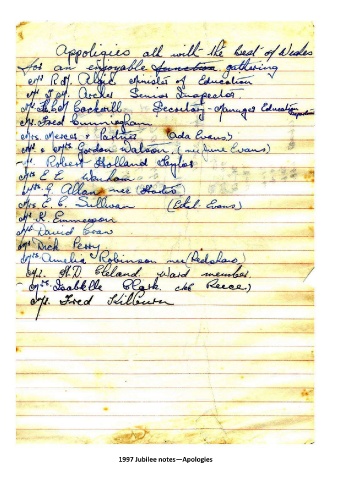 Appoligies all with the Best of Wishes
for an enjoyable function gathering
Mr R. M. Minister of Education
Mr Senior Inspector
Mr Cockerill Secretary - Manager Education
Mr. Fred Cunningham
Mrs. Mercer + Partner (Ada Evans)
Mr & Mrs Gordon Watson. (nee June Evans)
Mr. Robert Holland Taylor
Mrs E. E.
Mrs. G. Allan nee
Mrs. E. E. Sullivan (Ethel. Evans)
Mr. K. Emmerson
Mr David
Mr Dick Perry
Mrs. Amelia Robinson nee
Mr. H.D. Cleland ward member
Mrs. Isabelle Clark. (nee Reece.)
Mr. Fred Kilburn
1997 Jubilee notes—Apologies